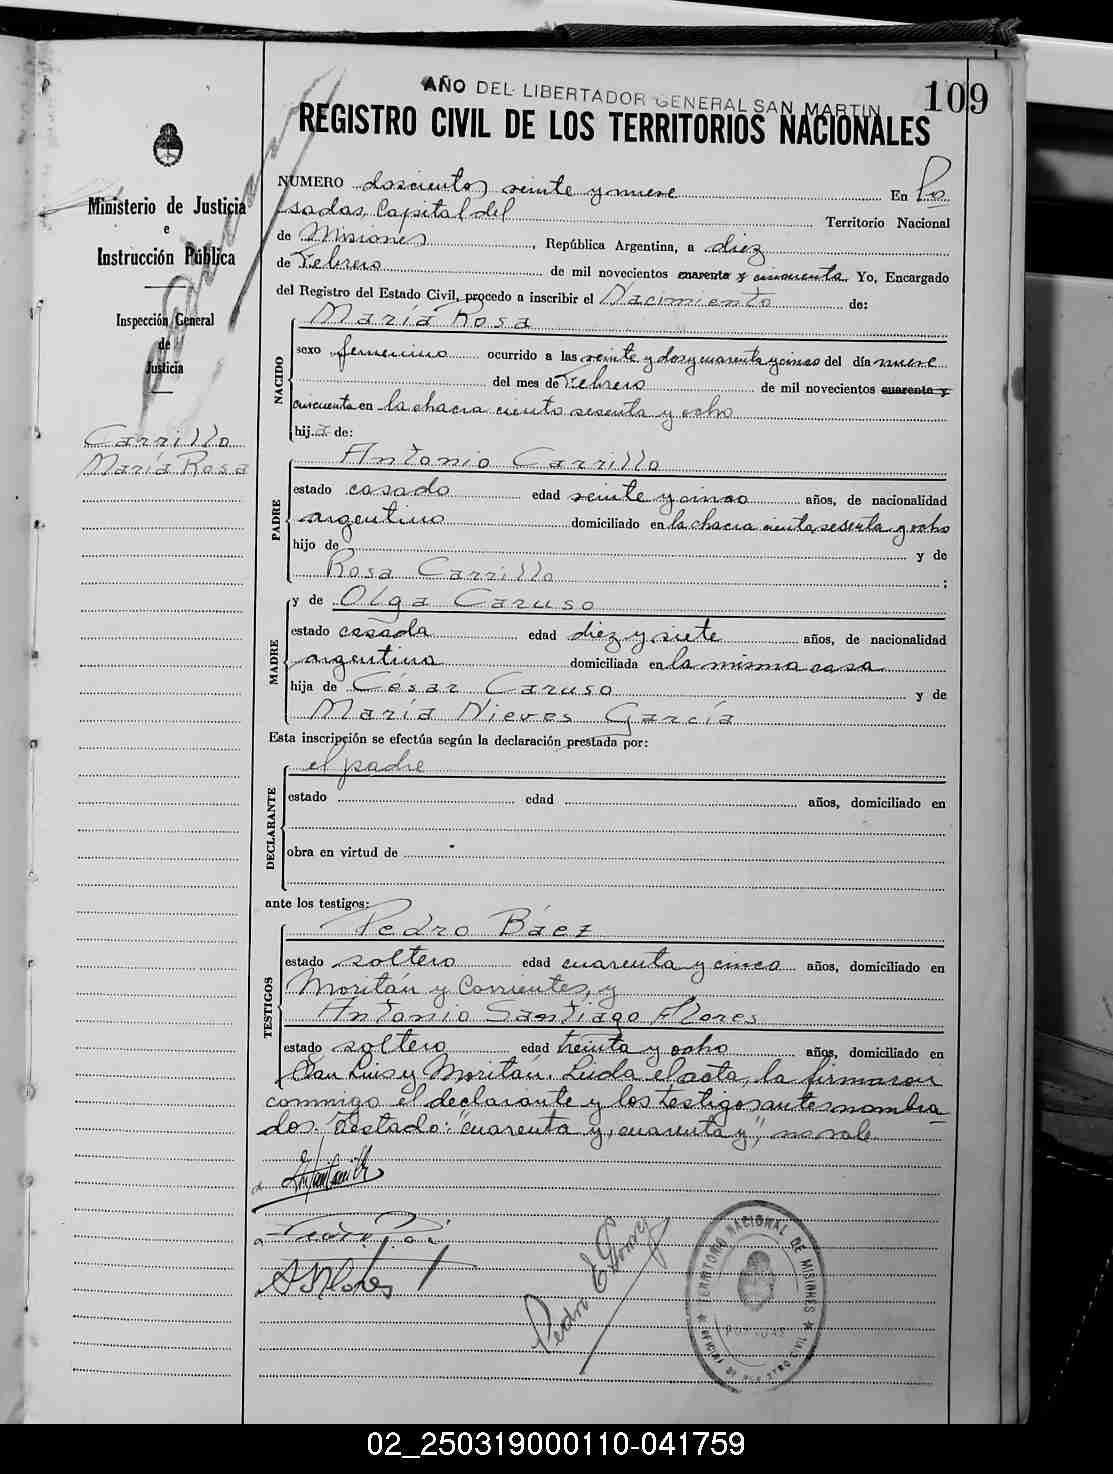 AÑO DEL LIBERTADOR GENERAL SAN MARTIN
109
REGISTRO CIVIL DE LOS TERRITORIOS NACIONALES
Ministerio de Justicia
e
Instrucción Pública
Inspección General
de
Justicia
Carrillo
María Rosa
NUMERO doscientos veinte y nueve En Po
sadas, Capital del Territorio Nacional
de Misiones, República Argentina, a diez
de Febrero de mil novecientos cuarenta y cincuenta. Yo, Encargado
del Registro del Estado Civil, procedo a inscribir el Nacimiento de:
María Rosa
NACIDO
sexo femenino ocurrido a las veinte y dos y cuarenta y cinco del día nueve
del mes de Febrero de mil novecientos cuarenta y
cincuenta en la chacra ciento sesenta y ocho
hij.a de:
Antonio Carrillo
PADRE
estado casado edad veinte y cinco años, de nacionalidad
argentino domiciliado en la chacra ciento sesenta y ocho
hijo de y de
Rosa Carrillo ;
y de Olga Caruso
MADRE
estado casada edad diez y siete años, de nacionalidad
argentina domiciliada en la misma casa
hija de César Caruso y de
María Nieves García
Esta inscripción se efectúa según la declaración prestada por:
el padre
DECLARANTE
estado edad años, domiciliado en
obra en virtud de
ante los testigos:
Pedro Báez
TESTIGOS
estado soltero edad cuarenta y cinco años, domiciliado en
Moritán y Corrientes, y
Antonio Santiago Flores
estado soltero edad treinta y ocho años, domiciliado en
San Luis y Moritán. Leída el acta, la firmaron
conmigo el declarante y los testigos antes nombra
dos. Testado: "cuarenta y, cuarenta y", no vale.
A S Flores
Pedro E Gomez
TERRITORIO NACIONAL DE MISIONES
POSADAS
OFICINA DE REGISTRO CIVIL
02_250319000110-041759